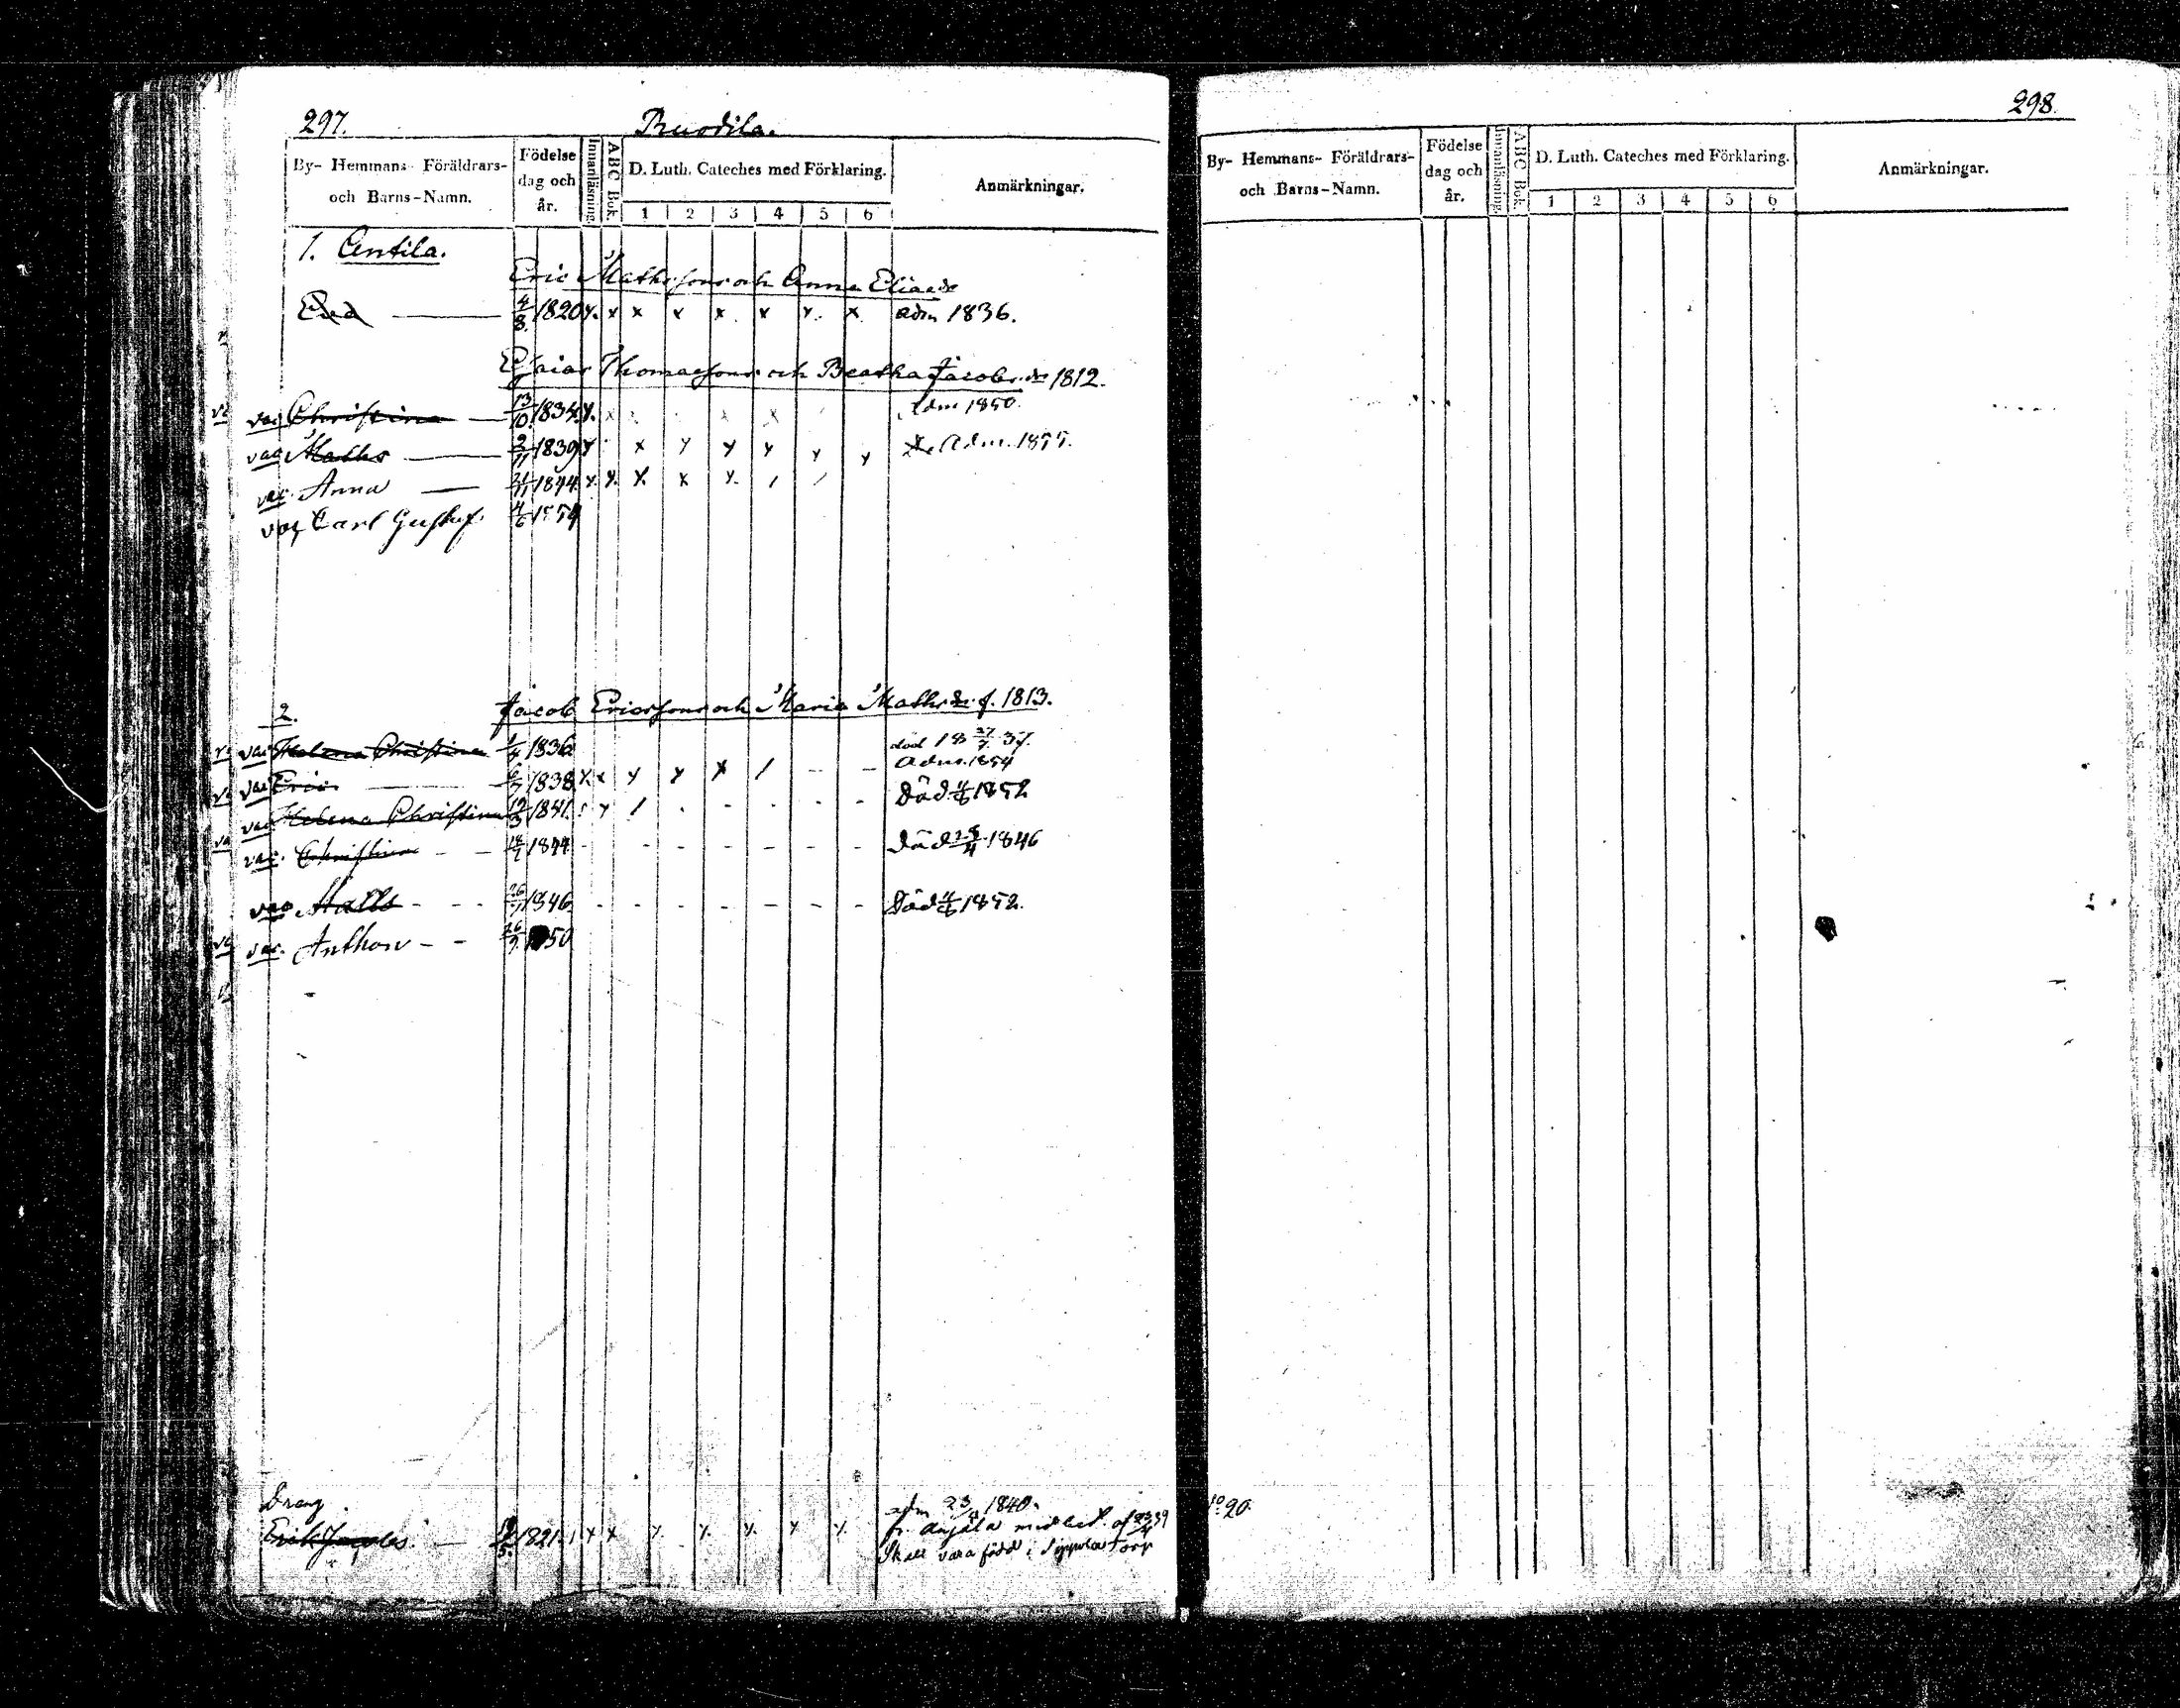 297. Ruodila.
By- Hemmans- Föräldrars- och Barns-Namn. Födelse dag och år. Innanläsning. ABC Bok. D. Luth. Cateches med Förklaring. Anmärkningar.
1 2 3 4 5 6
1. Antila.
Eric Mathssons och Anna Eliaed:r
Eva 4/8 1820 x. x x x x. x x. x. adm 1836.
Esaias Thomassons och Beatha Jacobsd:r 1812.
vac Christina 13/10 1834 x. x x x x Adm 1850.
vac Maths 2/11 1839 x x y y y y y Adm. 1855.
vac. Anna 1844 x. x. x. x x. / /
vac Carl Gustaf. 4/6 1854
2. Jacob Ericssons och Maria Mathsd:r f. 1813.
vac Helena Christina 1/4 1836 död 18 27/7 37.
vac Eric 1838 x x y y x / – – Adm. 1854
vac Helena Christina 19/3 1841 y / . - - - - Död 4/6 1852
vac. Christina - - 1844 - - - - - - - Död 28/4 1846
vac Maths - - - 26/7 1846 - - - - - - - - Död 4/6 1852.
vac. Anthon - - 26/9 1850
Dräng
Erik Jacobs. 1821. x x y. y. y. y y.
adm 23/4 1840.
fr. Anjala med bet. af 23/4 39
Skall vara född i Sippola
298.
By- Hemmans- Föräldrars- och Barns-Namn. Födelse dag och år. Innanläsning. ABC Bok. D. Luth. Cateches med Förklaring. Anmärkningar.
1 2 3 4 5 6
No 20.